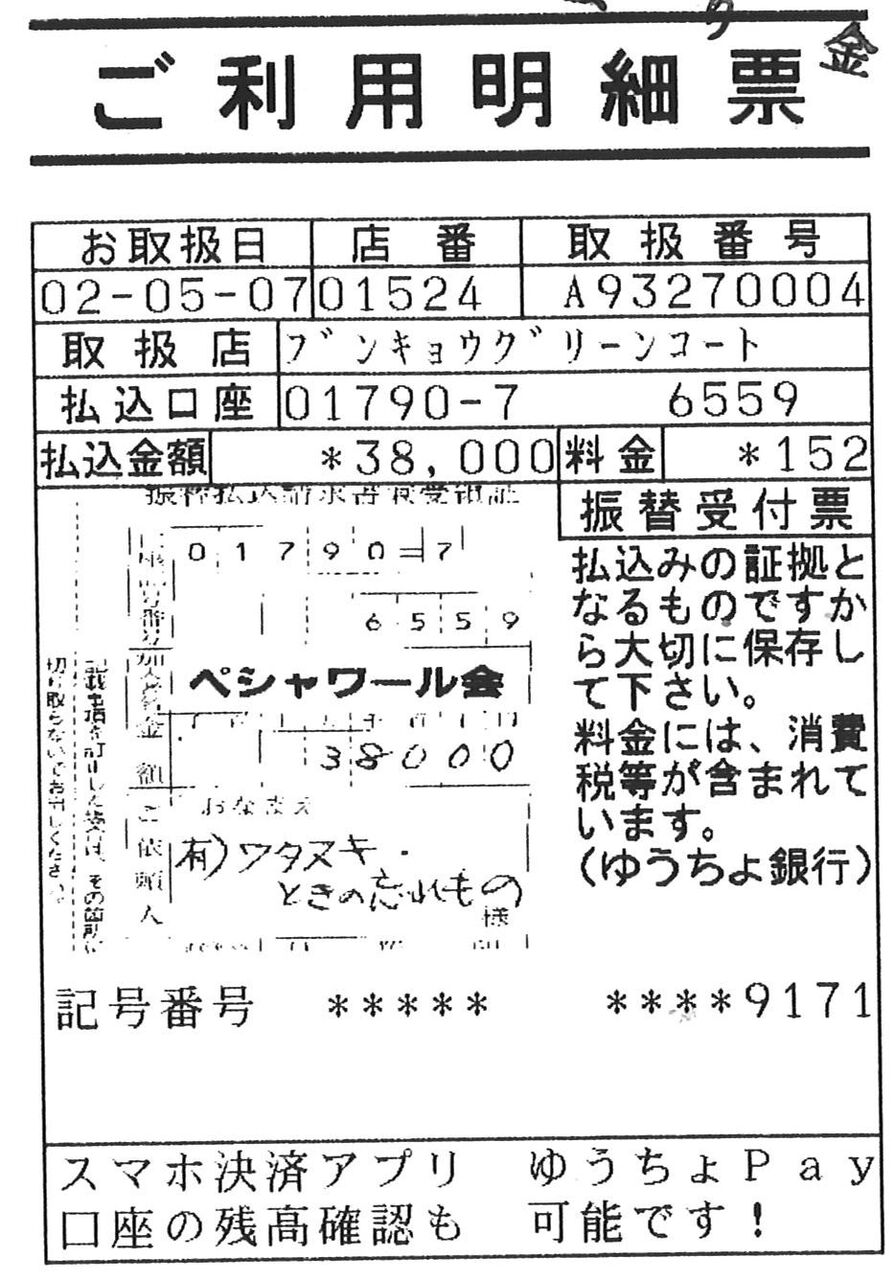 金
ご利用明細票
お取扱日 店番 取扱番号
02-05-07 01524 A93270004
取扱店 ブンキョウグリーンコート
払込口座 01790-7 6559
払込金額 *38,000 料金 *152
振替払込請求書兼受領証
01790=7
6559
ペシャワール会
38000
おなまえ
有)ワタヌキ.
ときの忘れもの
様
口座記号番号
加入者名
金額
ご依頼人
記載事項を訂正した場合は、その箇所に
切り取らないでお出しください。
振替受付票
払込みの証拠と
なるものですか
ら大切に保存し
て下さい。
料金には、消費
税等が含まれて
います。
(ゆうちょ銀行)
記号番号 ***** ****9171
スマホ決済アプリ ゆうちょPay
口座の残高確認も 可能です!